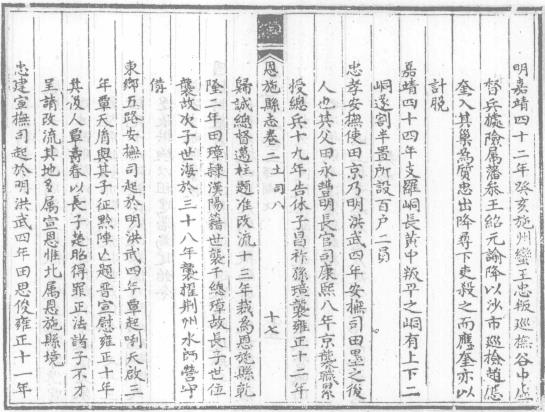 明嘉靖四十二年癸亥施州蠻王忠叛巡撫谷中虛
督兵據險屬藩泰王紹元諭降以沙市巡檢趙應
奎入其巢為質忠出降尋下吏殺之而應奎亦以
計脫
嘉靖四十四年支羅峒長黃中叛平之峒有上下二
峒遂割半置所設百户二員
忠孝安撫使田京乃明洪武四年安撫司田墨之後
人也其父田永豐明長官司康熙八年京襲職累
授總兵十九年告休子昌祚孫璋襲雍正十二年
恩施縣志卷二 土司 八
十七
歸誠總督邁柱題准改流十三年裁為恩施縣乾
隆二年田璋隸漢陽籍世襲千總璋故長子世位
襲故次子世海於三十八年襲擢荆州水師營守
備
東鄉五路安撫司起於明洪武四年覃起喇天啟三
年覃天㣧與其子征黔陣亡題晉宣慰雍正十年
其後人覃壽春以長子楚昭得罪正法諸子不才
呈請改流其地多屬宣恩惟北属恩施縣境
忠建宣撫司起於明洪武四年田思俊雍正十一年